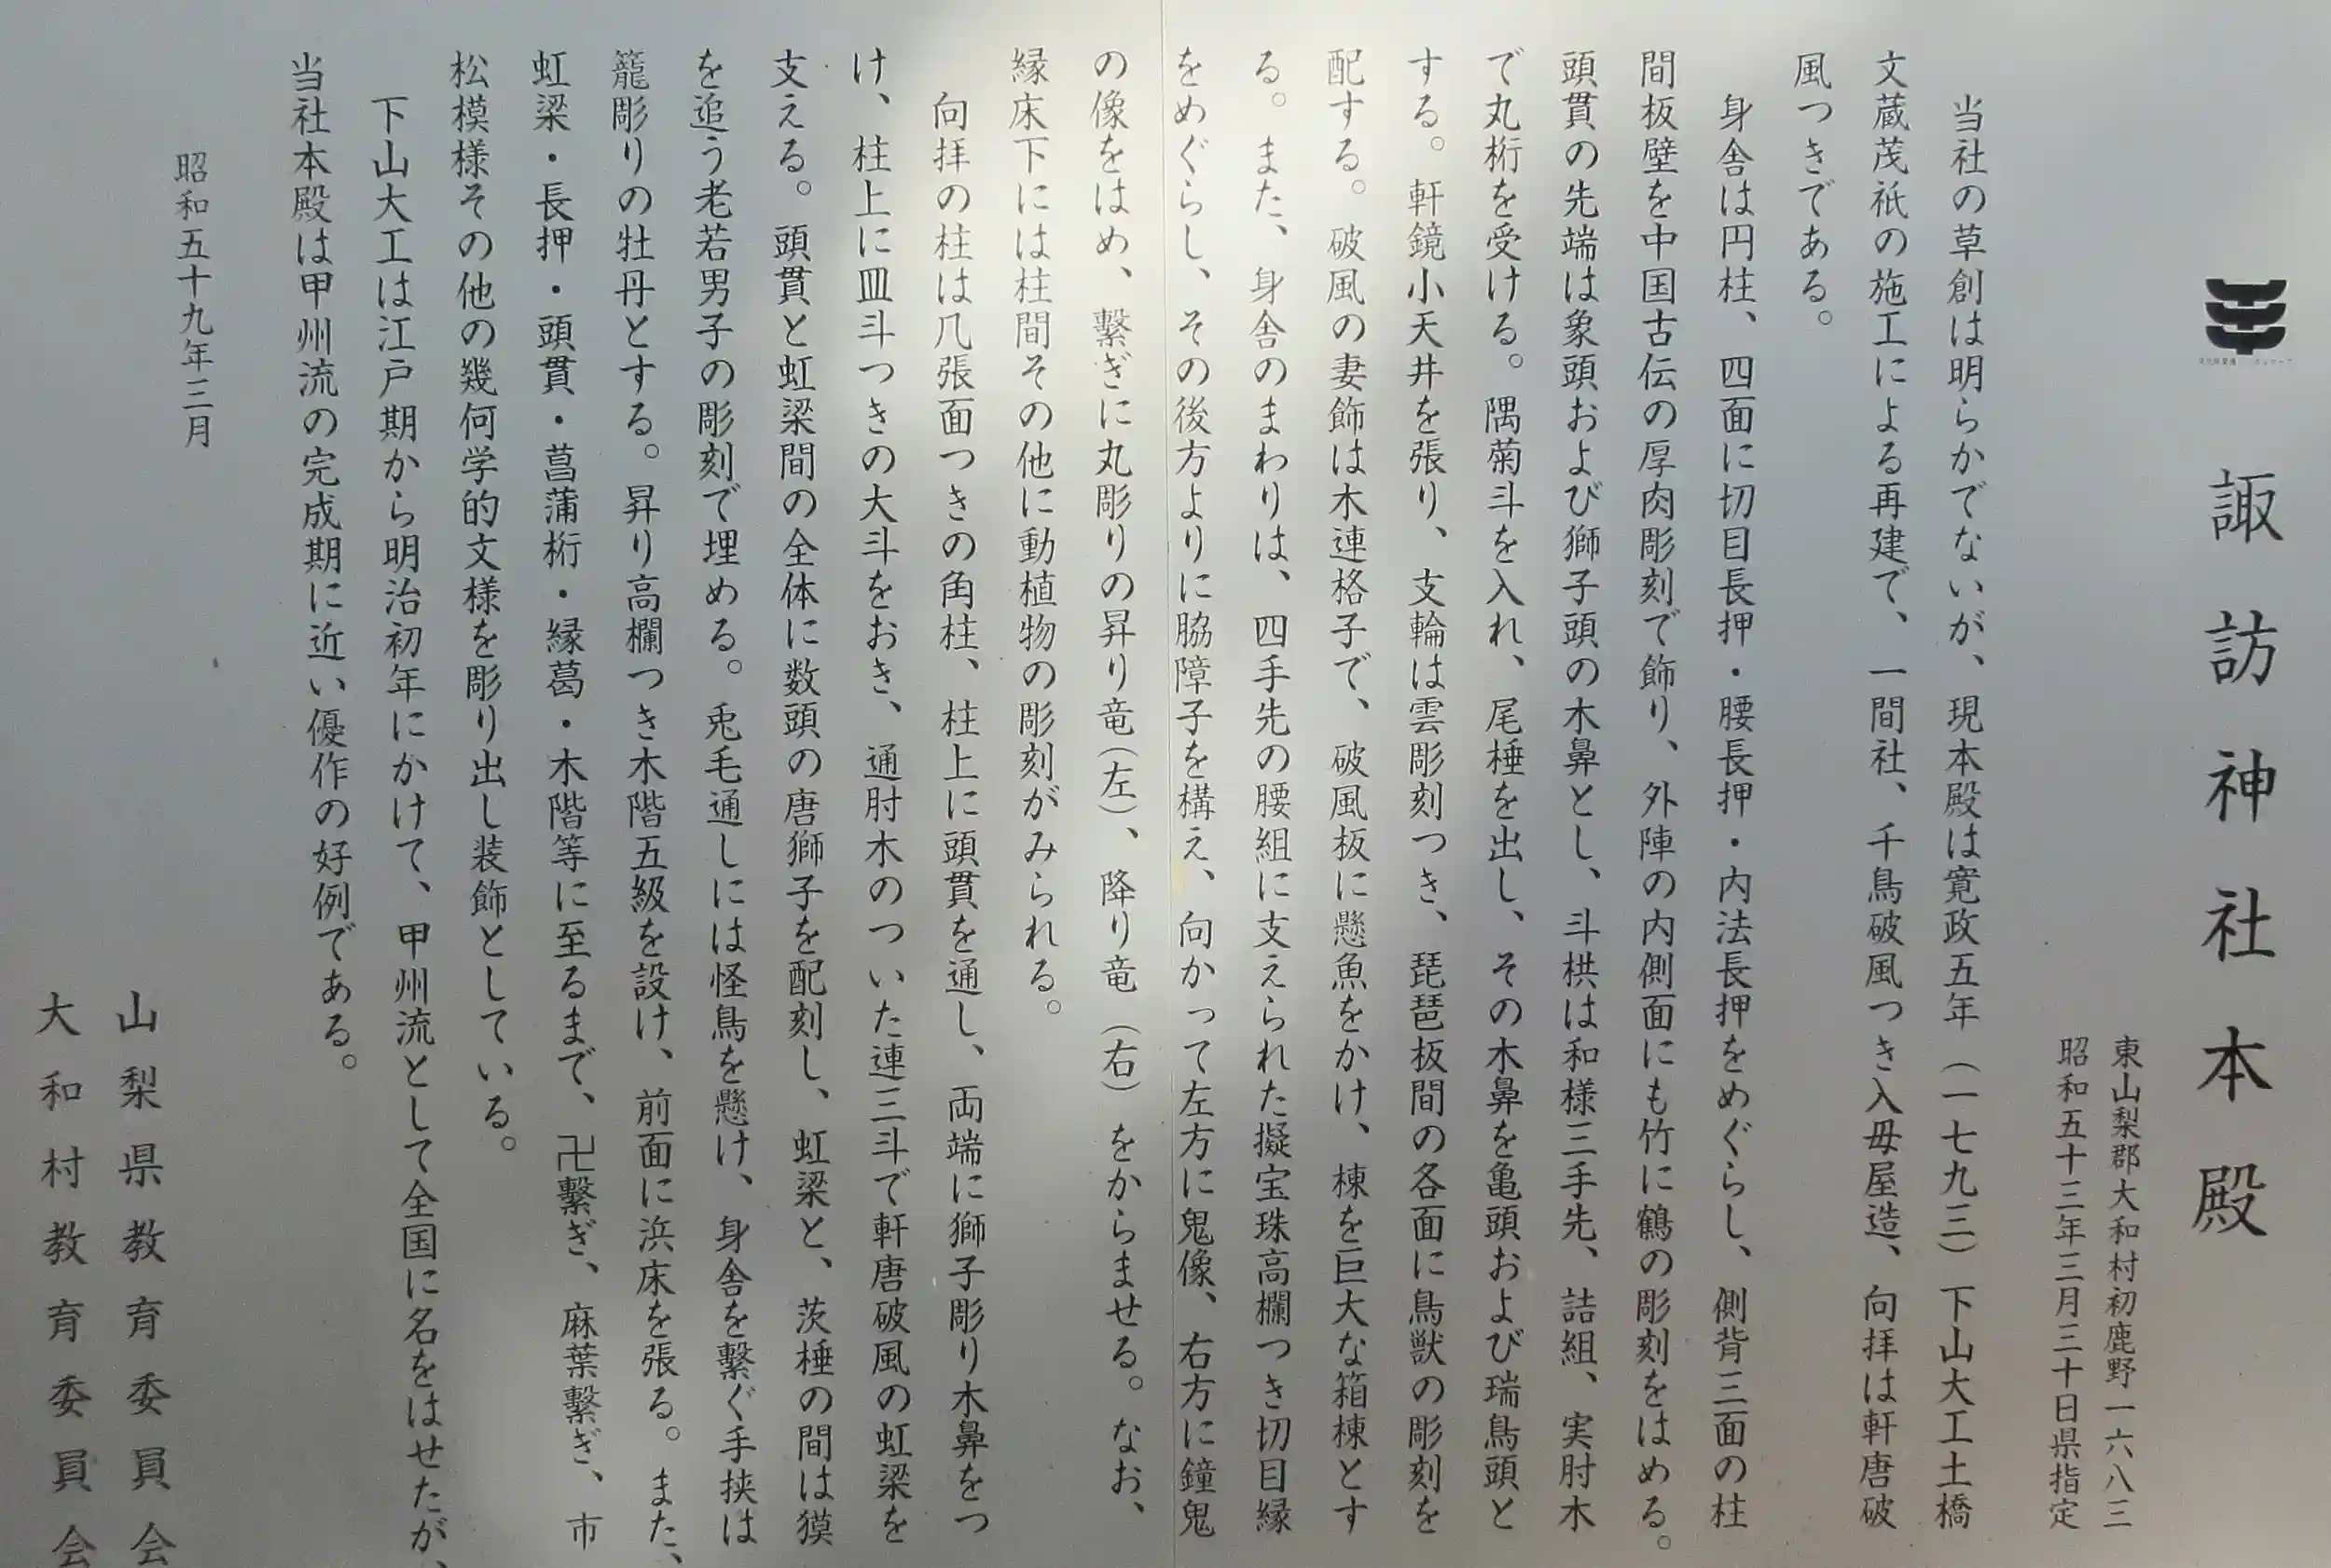 諏訪神社本殿
東山梨郡大和村初鹿野一六八三
昭和五十三年三月三十日県指定
当社の草創は明らかでないが、現本殿は寛政五年（一七九三）下山大工土橋
文蔵茂祇の施工による再建で、一間社、千鳥破風つき入母屋造、向拝は軒唐破
風つきである。
身舎は円柱、四面に切目長押・腰長押・内法長押をめぐらし、側背三面の柱
間板壁を中国古伝の厚肉彫刻で飾り、外陣の内側面にも竹に鶴の彫刻をはめる。
頭貫の先端は象頭および獅子頭の木鼻とし、斗栱は和様三手先、詰組、実肘木
で丸桁を受ける。隅菊斗を入れ、尾棰を出し、その木鼻を亀頭および瑞鳥頭と
する。軒鏡小天井を張り、支輪は雲彫刻つき、琵琶板間の各面に鳥獣の彫刻を
配する。破風の妻飾は木連格子で、破風板に懸魚をかけ、棟を巨大な箱棟とす
る。また、身舎のまわりは、四手先の腰組に支えられた擬宝珠高欄つき切目縁
をめぐらし、その後方よりに脇障子を構え、向かって左方に鬼像、右方に鐘鬼
の像をはめ、繋ぎに丸彫りの昇り竜（左）、降り竜（右）をからませる。なお、
縁床下には柱間その他に動植物の彫刻がみられる。
向拝の柱は几張面つきの角柱、柱上に頭貫を通し、両端に獅子彫り木鼻をつ
け、柱上に皿斗つきの大斗をおき、通肘木のついた連三斗で軒唐破風の虹梁を
支える。頭貫と虹梁間の全体に数頭の唐獅子を配刻し、虹梁と、茨棰の間は獏
を追う老若男子の彫刻で埋める。兎毛通しには怪鳥を懸け、身舎を繋ぐ手挟は
籠彫りの牡丹とする。昇り高欄つき木階五級を設け、前面に浜床を張る。また、
虹梁・長押・頭貫・菖蒲桁・縁葛・木階等に至るまで、卍繋ぎ、麻葉繋ぎ、市
松模様その他の幾何学的文様を彫り出し装飾としている。
下山大工は江戸期から明治初年にかけて、甲州流として全国に名をはせたが、
当社本殿は甲州流の完成期に近い優作の好例である。
昭和五十九年三月
山梨県教育委員会
大和村教育委員会